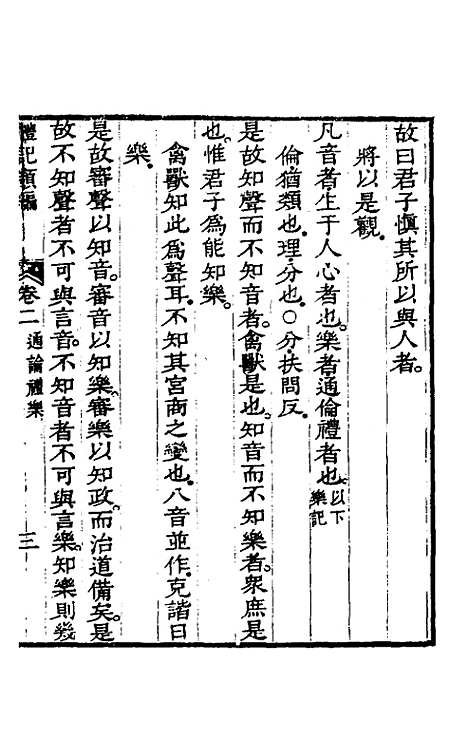 故曰君子慎其所以與人者。
將以是觀。
凡音者生于人心者也。樂者通倫禮者也。以下樂記
倫猶類也。理分也。○分扶問反。
是故知聲而不知音者。禽獸是也。知音而不知樂者。衆庶是
也。惟君子爲能知樂。
禽獸知此爲聲耳。不知其宮商之變也。八音並作。克諧曰
樂。
是故審聲以知音。審音以知樂。審樂以知政。而治道備矣。是
故不知聲者不可與言音。不知音者不可與言樂。知樂則幾
禮記類編 卷二 通論禮樂 三